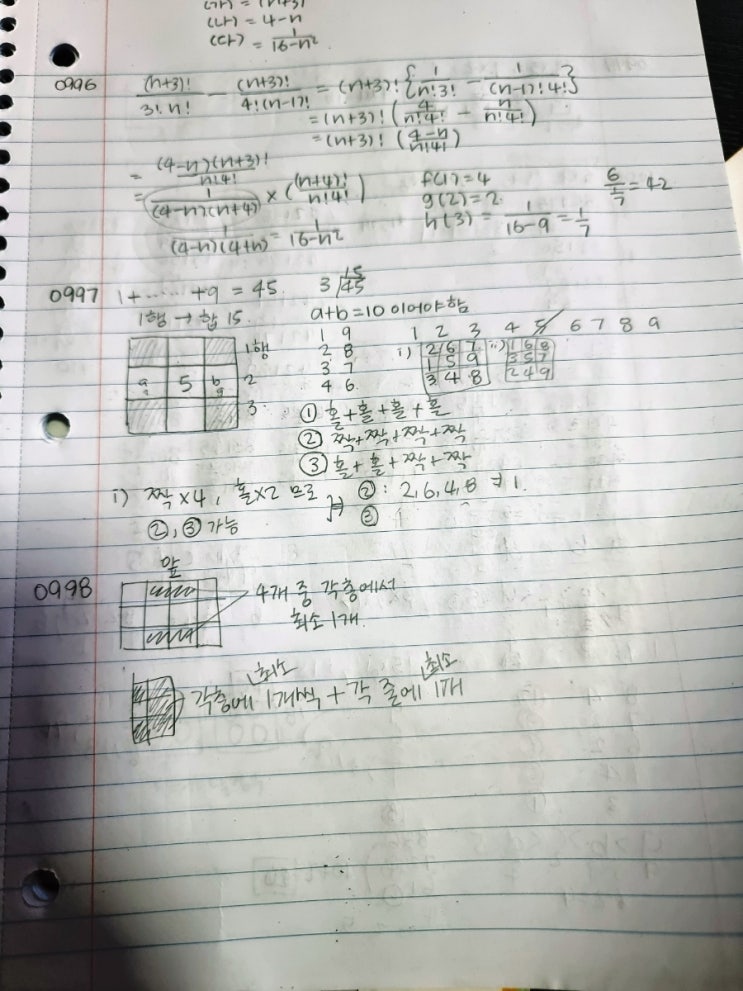 (가) = (n+3)
(나) = 4-n
(다) = 1/(16-n²)
0996 (n+3)!/(3!n!) - (n+3)!/(4!(n-1)!) = (n+3)! {1/(n!3!) - 1/((n-1)!4!)}
= (n+3)! (4/(n!4!) - n/(n!4!))
= (n+3)! ((4-n)/(n!4!))
= (4-n)(n+3)!/(n!4!)
= 1/((4-n)(n+4)) × ((n+4)!/(n!4!))
1/((4-n)(4+n)) = 1/(16-n²)
f(1)=4
g(2)=2
h(3) = 1/(16-9) = 1/7
6/(1/7) = 42
0997 1+ ...... +9 = 45 3 15/45
1행 → 합 15 a+b=10 이어야 함
1행
a 5 b 2
3
1 9
2 8
3 7
4 6
1 2 3 4 5 6 7 8 9
i) 2 6 7
1 5 9
3 4 8
ii) 1 6 8
3 5 7
2 4 9
① 홀+홀+홀+홀
② 짝+짝+짝+짝
③ 홀+홀+짝+짝
i) 짝×4, 홀×2 므로
②, ③ 가능
② : 2, 6, 4, 8 ⇒ 1
③
앞
0998 4개 중 각층에서
최소 1개
최소 최소
각층에 1개씩 + 각 줄에 1개